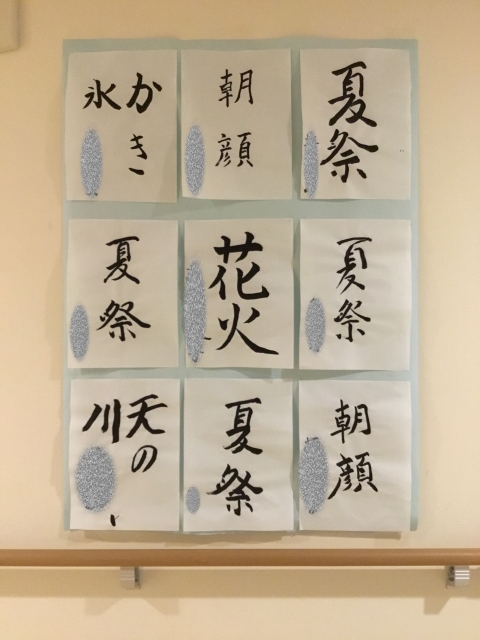 夏祭
朝顔
かき
氷
夏祭
花火
夏祭
朝顔
夏祭
天の
川